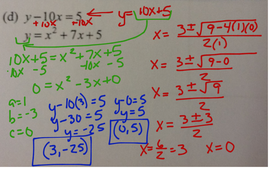 (d) y-10x=5
+10x +10x
y= 10x+5
y=x²+7x+5
10x+5=x²+7x+5
-10x -5 -10x -5
0=x²-3x+0
a=1
b=-3
c=0
y-10(3)=5
y-30=5
y=-25
(3,-25)
y-0=5
y=5
(0,5)
x= 3±√9-4(1)(0)
2(1)
x= 3±√9-0
2
x= 3±√9
2
x= 3±3
2
x= 6/2 =3 x=0